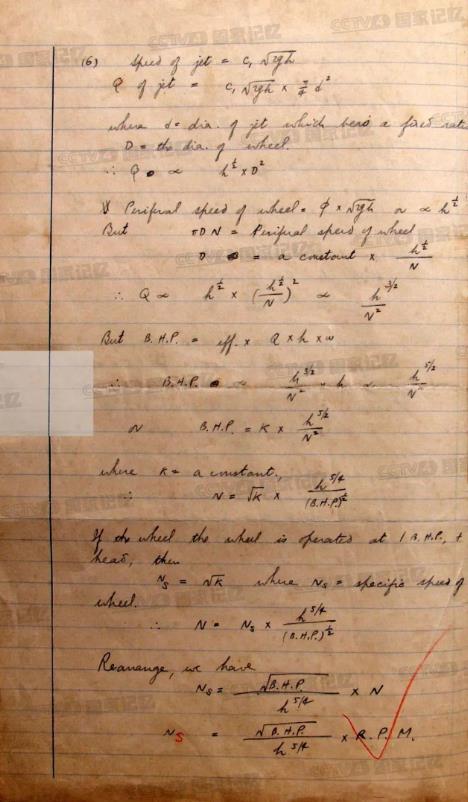 (6) Speed of jet = c, √2gh
Q of jet = c, √2gh × π/4 d²
where d = dia. of jet which bears a fixed ratio
D = the dia. of wheel.
∴ Q ∝ h^½ × D²
V Periferal speed of wheel = φ × √2gh or ∝ h^½
But πDN = Periferal speed of wheel
D = a constant × h^½/N
∴ Q ∝ h^½ × (h^½/N)² ∝ h^3/2/N²
But B.H.P. = eff. × Q × h × w
∴ B.H.P. ∝ h^3/2/N² × h ∝ h^5/2/N²
or B.H.P. = K × h^5/2/N²
where K = a constant,
∴ N = √K × h^5/4/(B.H.P.)^½
If the wheel the wheel is operated at 1 B.H.P., +
head, then
N_S = √K where N_S = specific speed of
wheel.
∴ N = N_S × h^5/4/(B.H.P.)^½
Rearrange, we have
N_S = √B.H.P./h^5/4 × N
N_S = √B.H.P./h^5/4 × R.P.M.